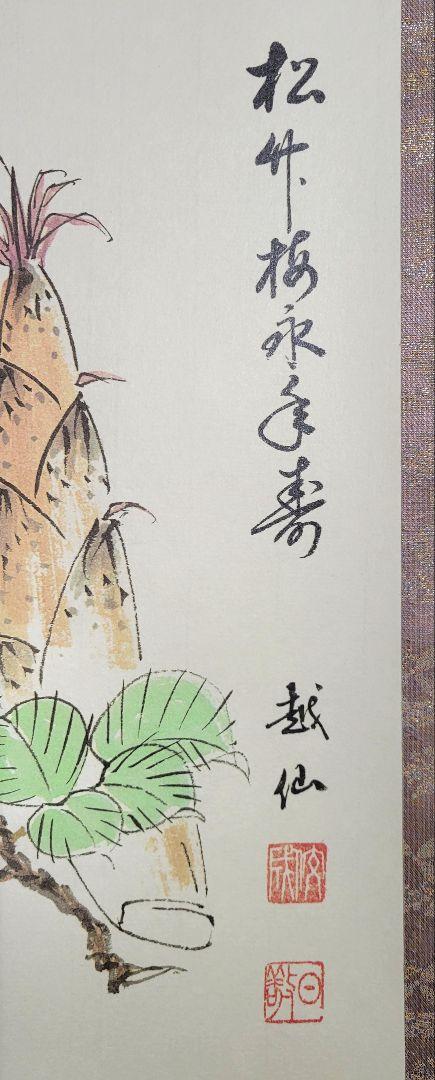 松竹梅永年寿
越仙